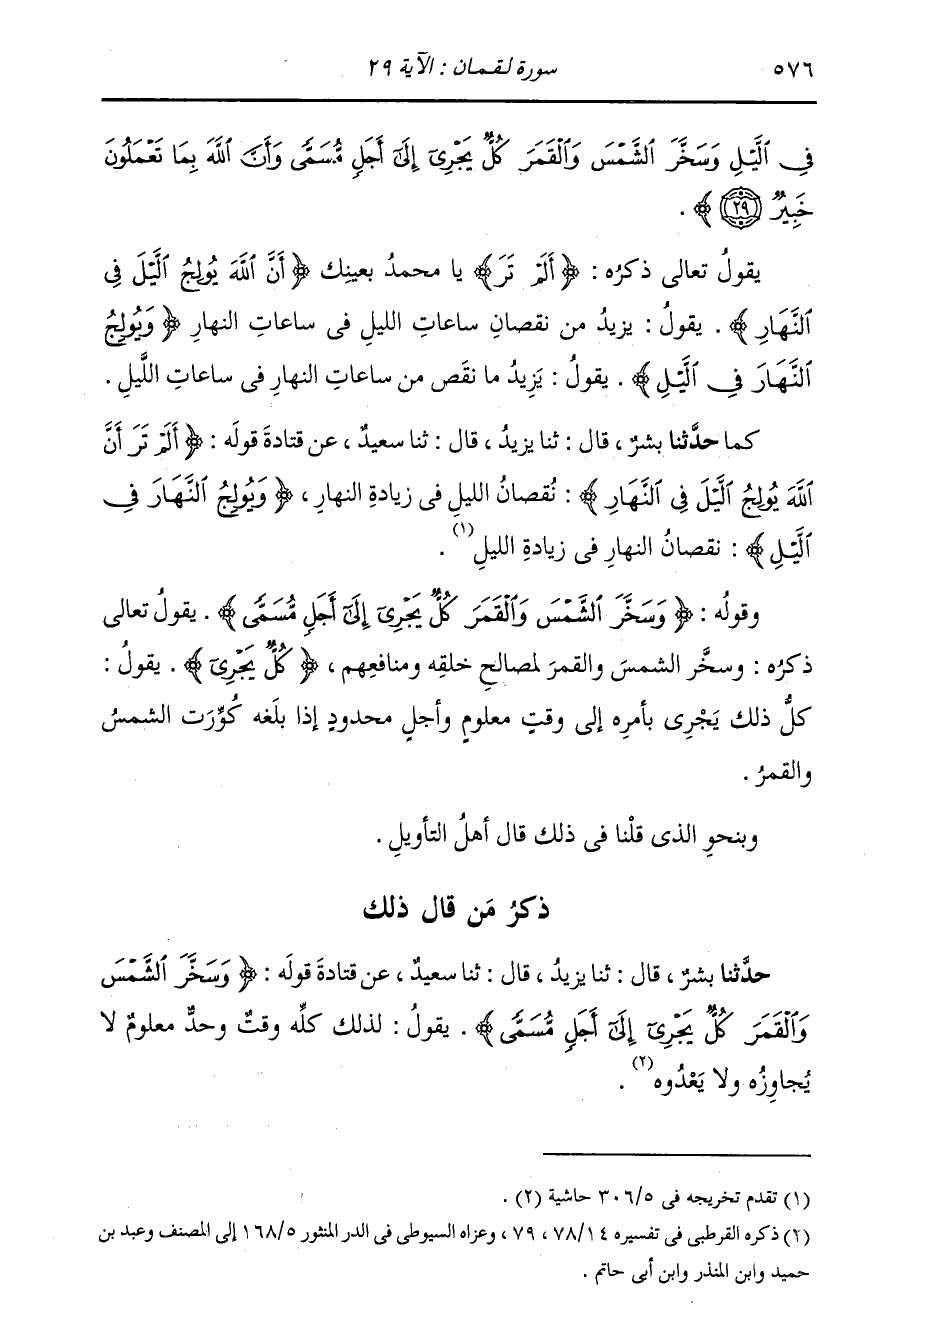 ٥٧٦ سورة لقمان : الآية ٢٩
فِى ٱلَّيْلِ وَسَخَّرَ ٱلشَّمْسَ وَٱلْقَمَرَ كُلٌّ يَجْرِىٓ إِلَىٰٓ أَجَلٍ مُّسَمًّى وَأَنَّ ٱللَّهَ بِمَا تَعْمَلُونَ
خَبِيرٌ ﴿٢٩﴾ ﴾ .
يقولُ تعالى ذكرُه : ﴿ أَلَمْ تَرَ ﴾ يا محمدُ بعينِك ﴿ أَنَّ ٱللَّهَ يُولِجُ ٱلَّيْلَ فِى
ٱلنَّهَارِ ﴾ . يقولُ : يزيدُ من نقصانِ ساعاتِ الليلِ فى ساعاتِ النهارِ ﴿ وَيُولِجُ
ٱلنَّهَارَ فِى ٱلَّيْلِ ﴾ . يقولُ : يَزِيدُ ما نقَص من ساعاتِ النهارِ فى ساعاتِ اللَّيلِ .
كما حدَّثنا بشرٌ ، قال : ثنا يزيدُ ، قال : ثنا سعيدٌ ، عن قتادةَ قولَه : ﴿ أَلَمْ تَرَ أَنَّ
ٱللَّهَ يُولِجُ ٱلَّيْلَ فِى ٱلنَّهَارِ ﴾ : نُقصانُ الليلِ فى زيادةِ النهارِ ، ﴿ وَيُولِجُ ٱلنَّهَارَ فِى
ٱلَّيْلِ ﴾ : نقصانُ النهارِ فى زيادةِ الليلِ(١) .
وقولُه : ﴿ وَسَخَّرَ ٱلشَّمْسَ وَٱلْقَمَرَ كُلٌّ يَجْرِىٓ إِلَىٰٓ أَجَلٍ مُّسَمًّى ﴾ . يقولُ تعالى
ذكرُه : وسخَّر الشمسَ والقمرَ لمصالحِ خلقِه ومنافعِهم ، ﴿ كُلٌّ يَجْرِىٓ ﴾ . يقولُ :
كلُّ ذلك يَجْرِى بأمرِه إلى وقتٍ معلومٍ وأجلٍ محدودٍ إذا بلَغه كُوِّرَت الشمسُ
والقمرُ .
وبنحوِ الذى قلْنا فى ذلك قال أهلُ التأويلِ .
ذكرُ مَن قال ذلك
حدَّثنا بشرٌ ، قال : ثنا يزيدُ ، قال : ثنا سعيدٌ ، عن قتادةَ قولَه : ﴿ وَسَخَّرَ ٱلشَّمْسَ
وَٱلْقَمَرَ كُلٌّ يَجْرِىٓ إِلَىٰٓ أَجَلٍ مُّسَمًّى ﴾ . يقولُ : لذلك كلِّه وقتٌ وحدٌّ معلومٌ لا
يُجاوِزُه ولا يَعْدُوه(٢) .
(١) تقدم تخريجه فى ٣٠٦/٥ حاشية (٢) .
(٢) ذكره القرطبى فى تفسيره ٧٨/١٤ ، ٧٩ ، وعزاه السيوطى فى الدر المنثور ١٦٨/٥ إلى المصنف وعبد بن
حميد وابن المنذر وابن أبى حاتم .